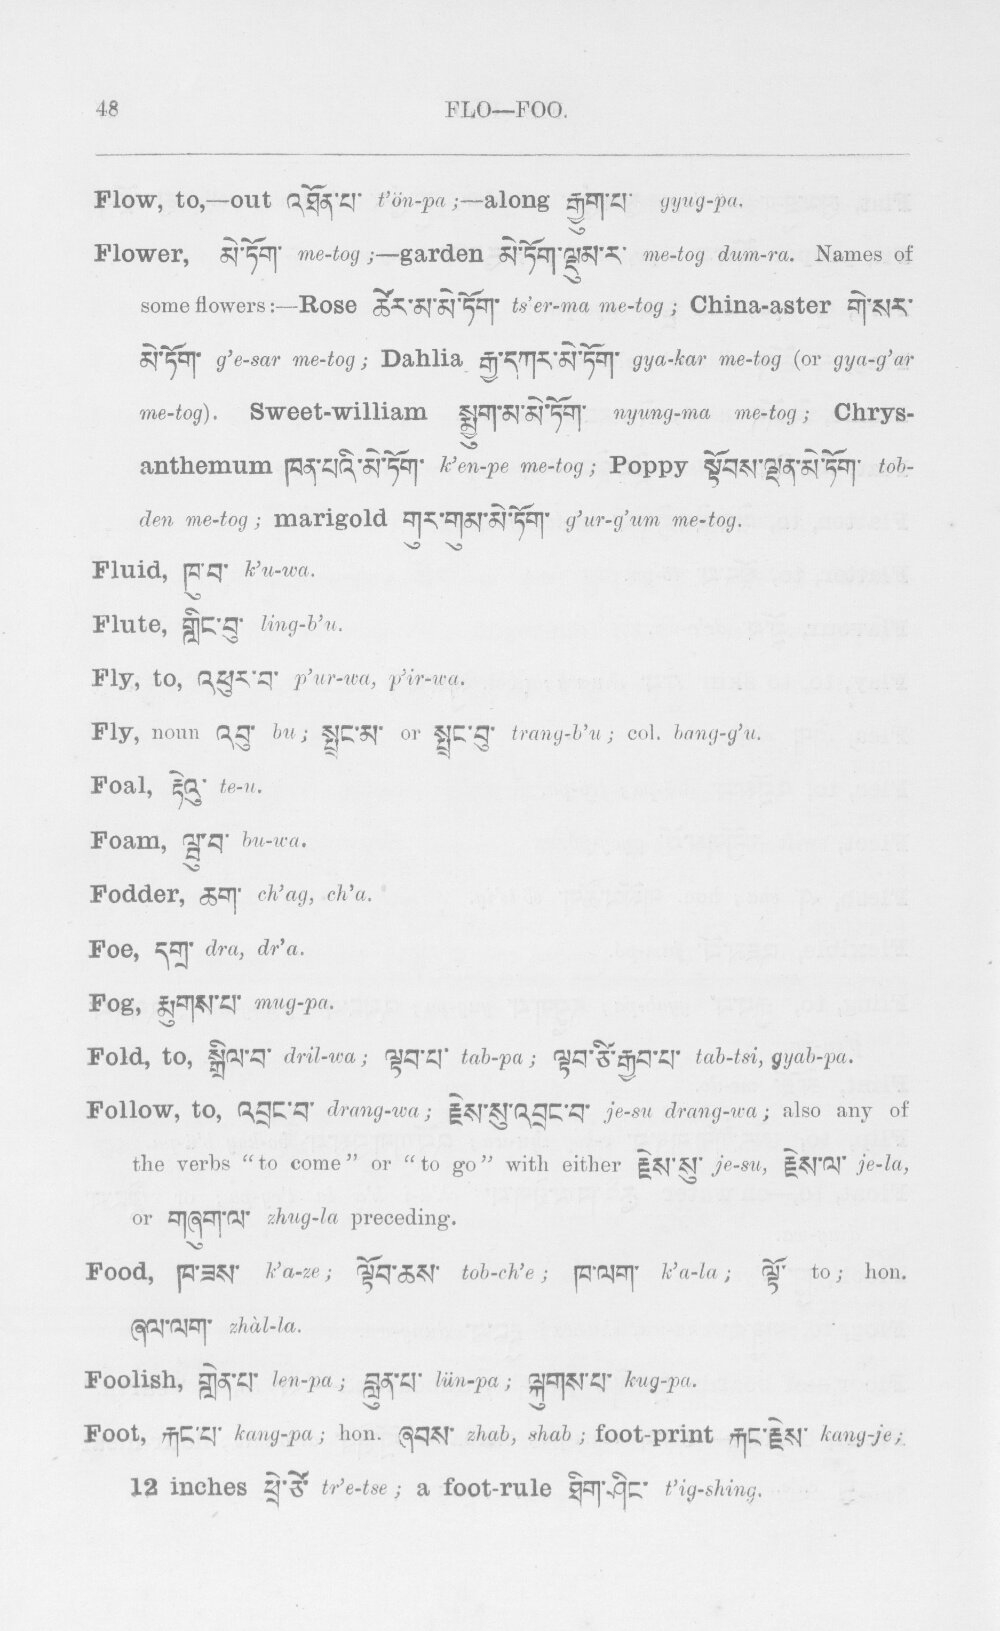 48 FLO—FOO.
Flow, to,—out འཐོན་པ་ t'ön-pa ;—along རྒྱུག་པ་ gyug-pa.
Flower, མེ་ཏོག་ me-tog ;—garden མེ་ཏོག་ལྡུམ་ར་ me-tog dum-ra. Names of
some flowers :—Rose ཚེར་མ་མེ་ཏོག་ ts'er-ma me-tog ; China-aster གེ་སར་
མེ་ཏོག་ g'e-sar me-tog ; Dahlia རྒྱ་དཀར་མེ་ཏོག་ gya-kar me-tog (or gya-g'ar
me-tog). Sweet-william སྨྱུག་མ་མེ་ཏོག་ nyung-ma me-tog ; Chrys-
anthemum ཁན་པའི་མེ་ཏོག་ k'en-pe me-tog ; Poppy སྟོབས་ལྡན་མེ་ཏོག་ tob-
den me-tog ; marigold གུར་གུམ་མེ་ཏོག་ g'ur-g'um me-tog.
Fluid, ཁུ་བ་ k'u-wa.
Flute, གླིང་བུ་ ling-b'u.
Fly, to, འཕུར་བ་ p'ur-wa, p'ir-wa.
Fly, noun འབུ་ bu ; སྦྲང་མ་ or སྦྲང་བུ་ trang-b'u ; col. bang-g'u.
Foal, རྟེའུ་ te-u.
Foam, ལྦུ་བ་ bu-wa.
Fodder, ཆག་ ch'ag, ch'a.
Foe, དགྲ་ dra, dr'a.
Fog, རྨུགས་པ་ mug-pa.
Fold, to, སྒྲིལ་བ་ dril-wa ; ལྟབ་པ་ tab-pa ; ལྟབ་ཙི་རྒྱབ་པ་ tab-tsi, gyab-pa.
Follow, to, འབྲང་བ་ drang-wa ; རྗེས་སུ་འབྲང་བ་ je-su drang-wa ; also any of
the verbs “to come” or “to go” with either རྗེས་སུ་ je-su, རྗེས་ལ་ je-la,
or གཞུག་ལ་ zhug-la preceding.
Food, ཁ་ཟས་ k'a-ze ; ལྟོབ་ཆས་ tob-ch'e ; ཁ་ལག་ k'a-la ; ལྟོ་ to ; hon.
ཞལ་ལག་ zhàl-la.
Foolish, གླེན་པ་ len-pa ; བླུན་པ་ lün-pa ; ལྐུགས་པ་ kug-pa.
Foot, རྐང་པ་ kang-pa ; hon. ཞབས་ zhab, shab ; foot-print རྐང་རྗེས་ kang-je ;
12 inches ཕྲེ་ཙེ་ tr'e-tse ; a foot-rule ཐིག་ཤིང་ t'ig-shing.